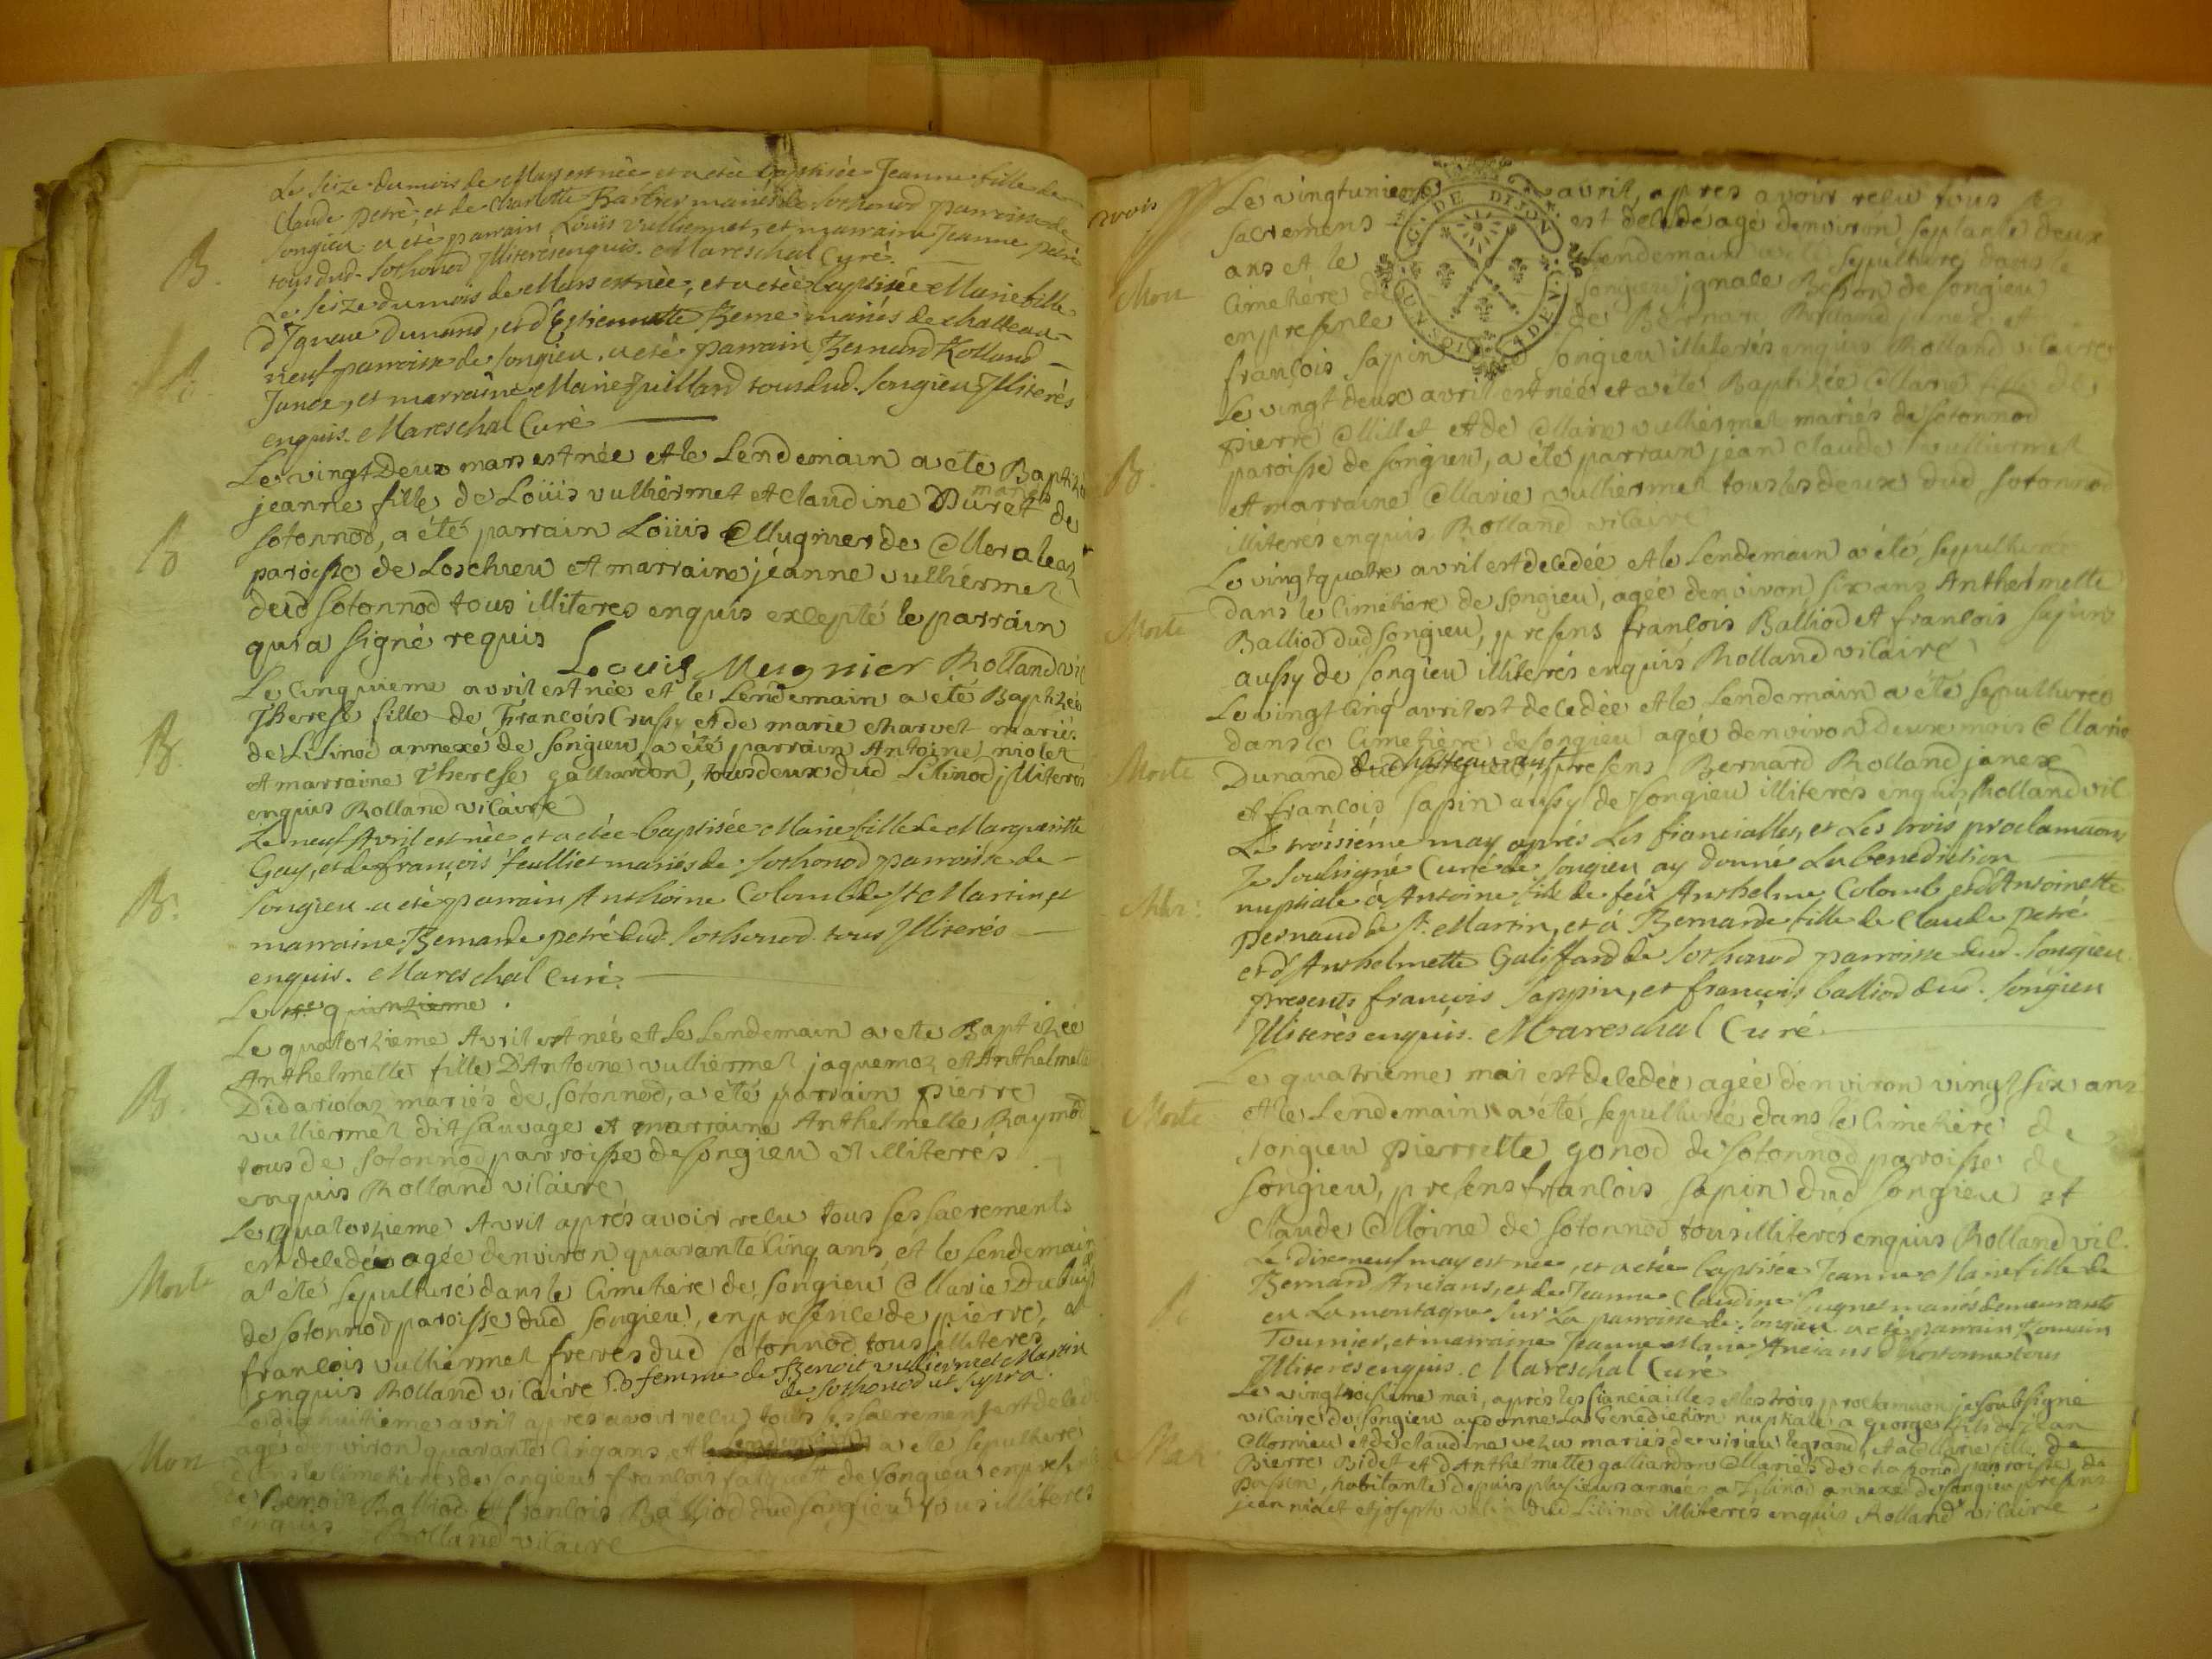 Le seize du mois de Mars est née et a eté baptisée Jeanne fille de
Claude petré, et de Charlotte Barbier mariés de Sothonod parroisse de
Songieu a eté parrain Loüis Vulliermet, et marraine Jeanne petré
B.
tous dud. Sothonod Illiterés enquis. Mareschal Curé.
Le seize du mois de Mars est née, et a eté baptisée Marie fille
d'Ignace Dunand, et d'Estiennette Berne mariés de chatteau-
neuf parroisse de Songieu, a eté parrain Bernard Rolland
B.
Janex, et marraine Marie Juilland tous dud. Songieu Illiterés
enquis. Mareschal Curé
Le vingt Deux mars est née et le Lendemain a été Baptizé
jeanne fille de Loüis vulliérmet et claudine Duret mariés de
B
sotonnod, a été parrain Loüis Mugnier de
paroisse de Loschieu et marraine jéanne vulliérmet
dud sotonnod tous illiteres enquis excepté le parrain
qui a signé requis
Louis Mugnier Rolland vic
Le Cinquieme avril est née et le Lendemain a eté Baptizée
Therese fille de François Crussy et de marie charvet mariés
B.
de Lilinod annexe de songieu, a été parrain Antoine violet
et marraine Therese galliardon, tous deux dud Lilinod jlliteres
enquis Rolland vicaire
Le neuf Avril est née et a etée baptisée Marie fille de Margueritte
Guy, et de françois feulliet mariés de Sothonod parroisse de
B.
Songieu a eté parrain Anthoine Colomb de St Martin, et
marraine Bernarde petré dud. Sothonod tous Illiterés
enquis. Mareschal Curé.
Le quinzieme.
Le quatorzieme Avril est née et le Lendemain a ete Baptizée
Anthelmette fille D'Antoine vulliermet jaquemoz et Anthelmette
B.
Didariolaz mariés de sotonnod, a été parrain pierre
vulliermet dit sauvage et marraine Anthelmette Raymod
tous de sotonnod parroisse de songieu et illiterés
enquis Rolland vicaire
Le quatorzieme Avril aprés avoir recu tous ses sacrements
est decedée agée denviron quarante cinq ans et le lendemain
Morte
a été sepulturé dans le Cimetiere de songieu Marie Dubuis
de sotonnod paroisse dud songieu, en presence de pierre, et
francois vulliermet freres dud sotonnod tous illiteres
enquis Rolland vicaire femme de Benoit vulliermet Martin
de sothonod ut supra.
Le dix huitieme avril apres avoir recu tous ses sacremens est decede
agé denviron quarante cinq ans et le lendemain a eté sepulturé
Mort
dans le cimetiere de songieu francois de songieu en presence
de Benoit Balliod et francois Balliod dud songieu tous illiteres
enquis Rolland vicaire
Le vingtunieme avril, apres avoir recu tous ses
sacremens est decedé agé denviron septante deux
ans et le Lendemain a eté sepulturé dans le
Mort
Cimetiére de songieu ignace de songieu
en presence de Bernard Rolland janex et
françois sapin de songieu illiterés enquis Rolland vicaire
G. DE DIJON
Le vingt deux avril est née et a été Baptizée Marie fille de
pierre Millet et de Marie vulliérmet mariés de sotonnod
B.
paroisse de songieu, a été parrain jean claude vulliermet
et marraine Marie vulliermet tous les deux dud sotonnod
illiterés enquis Rolland vicaire
Le vingt quatre avril est decedée et le Lendemain a été sepulturée
dans le Cimetiere de songieu, agée denviron six ans Anthelmette
Morte
Balliod dud songieu, presens françois Balliod et francois sapin
aussy de songieu illiterés enquis Rolland vicaire
Le vingt cinq avril est decedée et le Lendemain a été sepulturée
dans le Cimetiére de songieu agée denviron deux mois Marie
Morte
Dunand de chateauneuf, presens Bernard Rolland janex
et françois sapin aussy de songieu illiterés enquis Rolland vic
Le troisiéme may aprés Les fiancialles, et Les trois proclamaõns
Je Soussigné Curé de Songieu ay donné La benediction
Mar:
nuptiale à Antoine fils de feû Anthelme Colomb, et d'Antoinette
pernaud de St Martin, et à Bernarde fille de Claude petré
et d'Anthelmette Galiffard de Sothonod parroisse dud. Songieu
presents françois Sappin, et françois balliod dud. Songieu
Illiterés enquis. Mareschal Curé
Le quatriéme mai est decedée agée denviron vingt six ans
Morte
et le Lendemain a été sepulturée dans le Cimetiére de
songieu pierrette gonod de sotonnod paroisse de
songieu, presens francois sapin dud songieu et
claude Moine de sotonnod tous illiterés enquis Rolland vic.
Le dixneuf may est née, et a etée baptisée Jeanne Marie fille de
Bernard Ancians, et de Jeanne Claudine Cugnet mariés demeurants
B.
en La montagne sur La parroisse de Songieu a eté parrain Romain
Tournier, et marraine Jeanne Marie Ancians tous
Illiterés enquis. Mareschal Curé
Le vingtroisieme mai, aprés les fianciailles et les trois proclamaõn je soubsigné
vicaire de songieu ay donné La Benediction nuptiale a george fils de jean
Mornieu et de claudine mariés de virieu le grand, et a Marie fille de
Mar
Pierre Bidet et d'Anthelmette galliardon Mariés de chavonod parroisse de
passin, habitante depuis plusieurs années a Lilinod annexe de songieu presens
jean violet et joseph dud Lilinod illiterés enquis Rolland vicaire